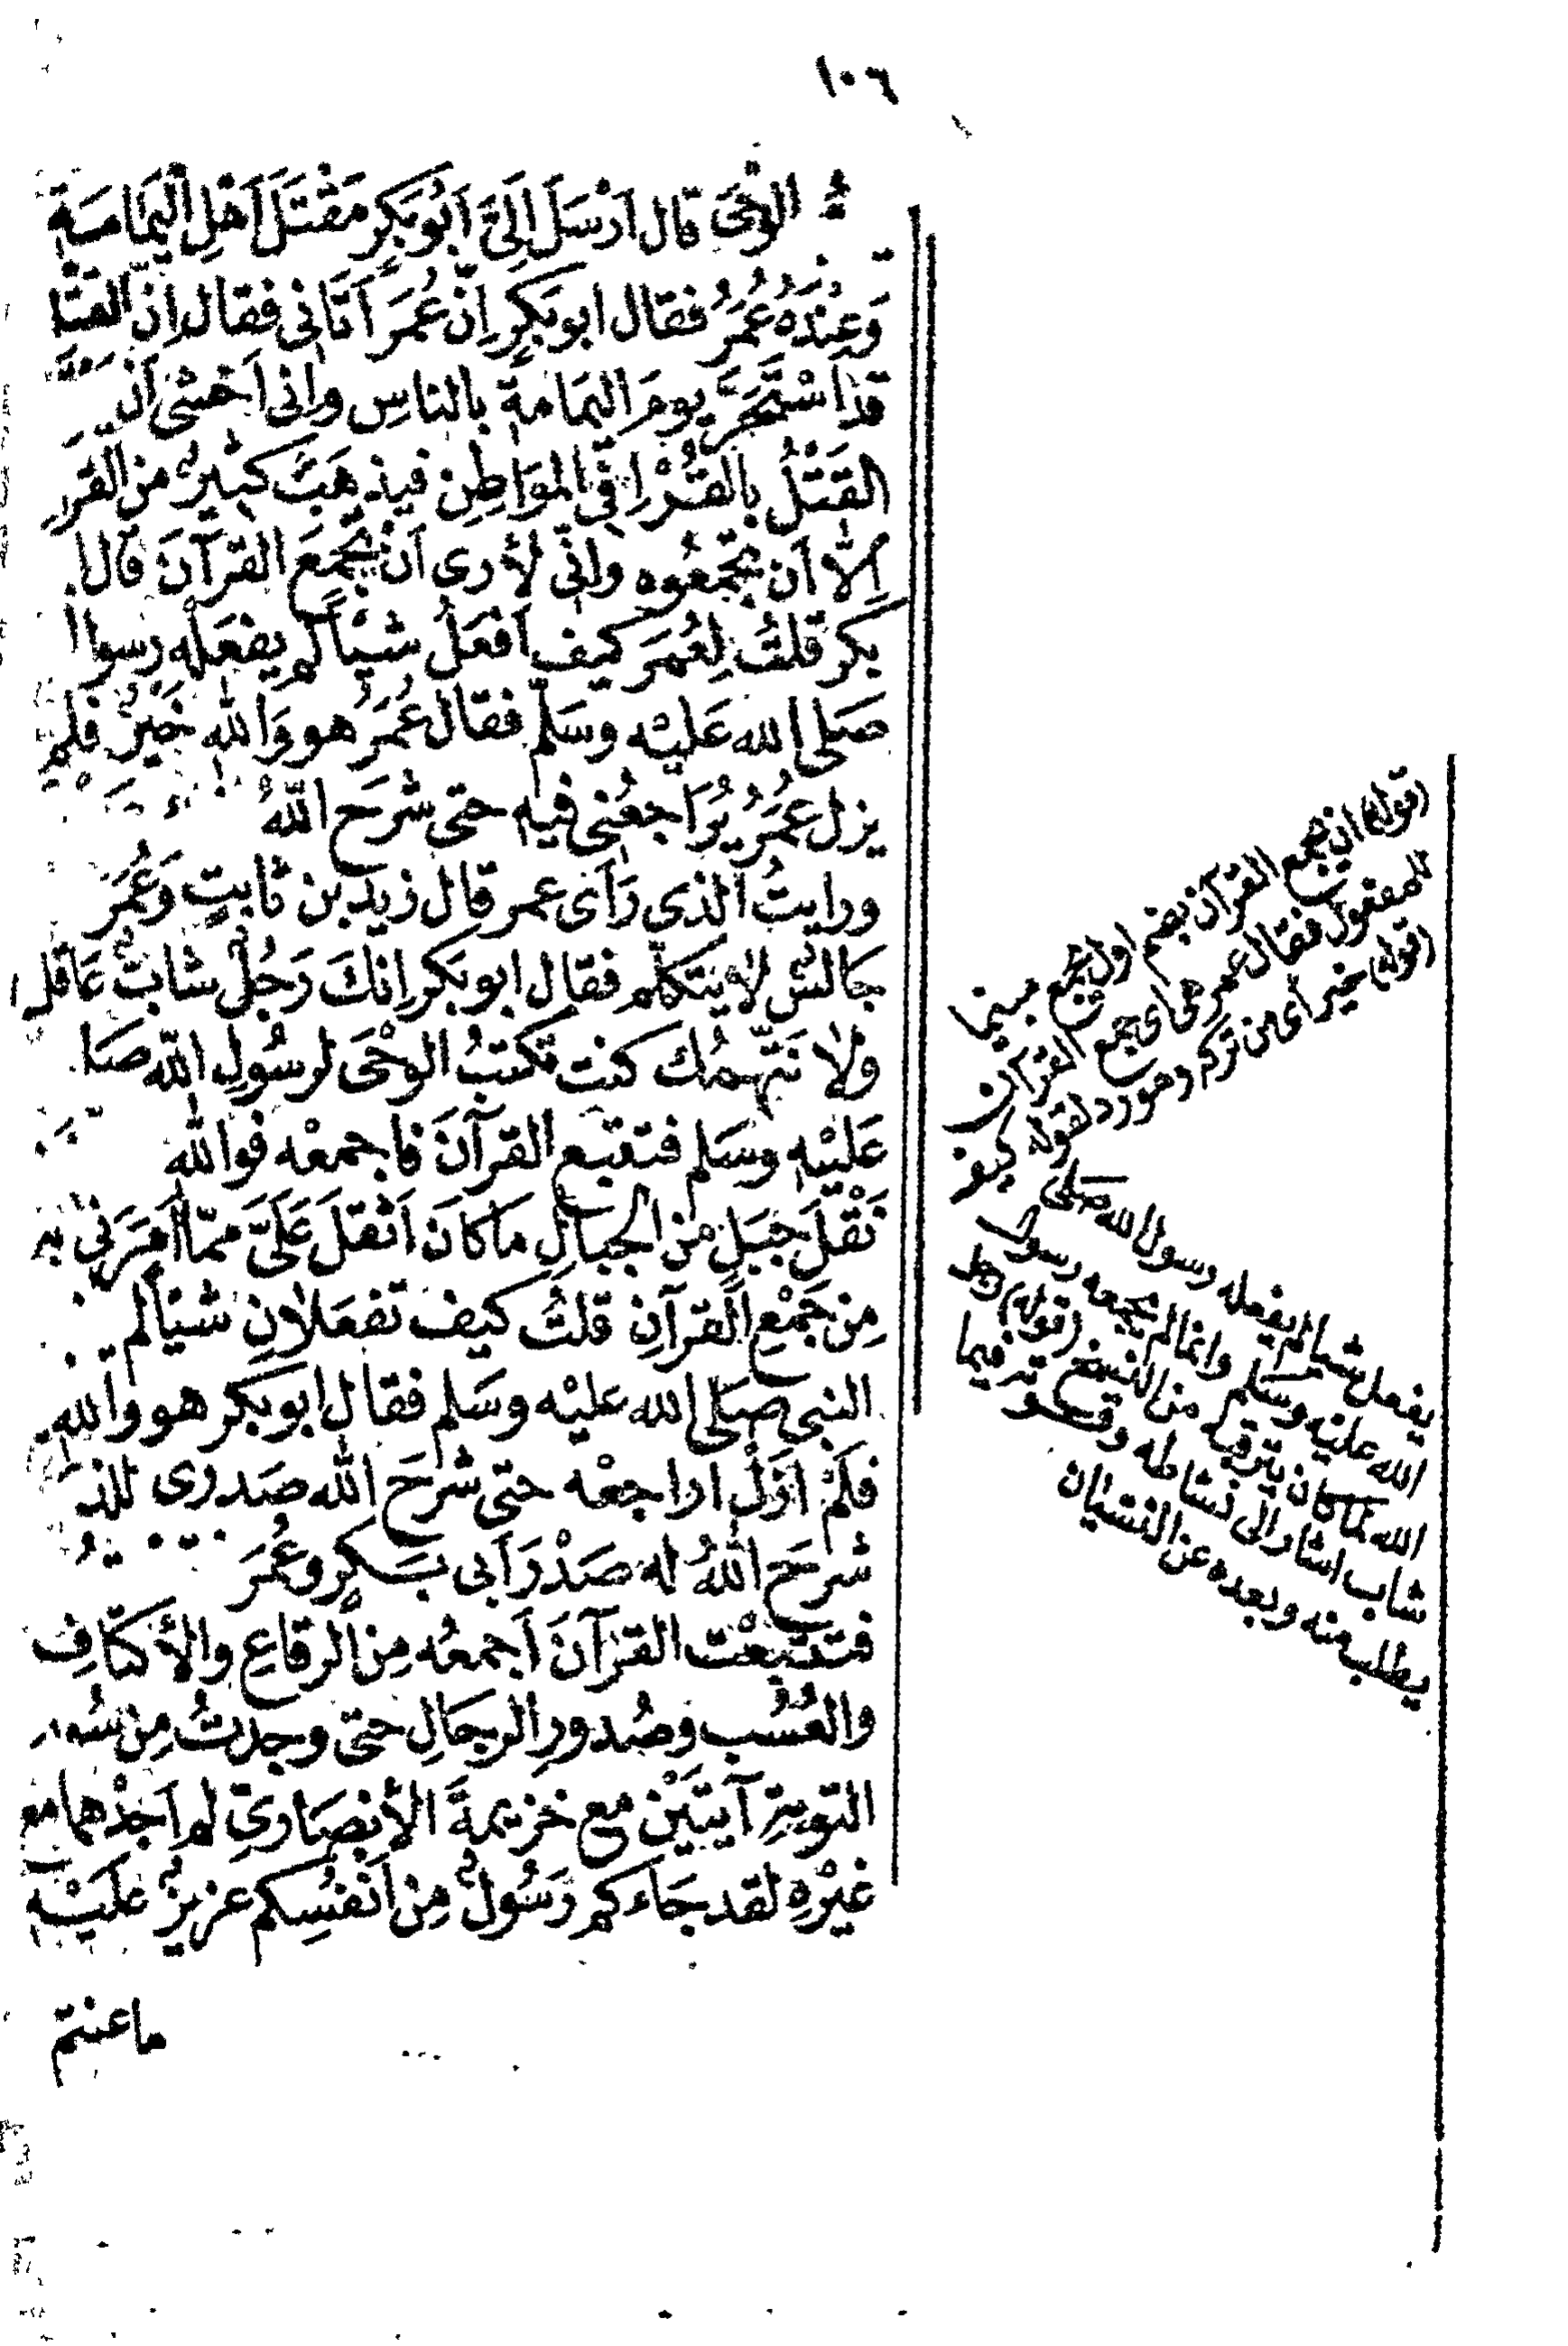 ١٠٦
الوَحْىَ قال اَرْسَلَ اِلَىَّ اَبُو بَكرٍ مَقْتَلَ اَهْلِ اليَمَامَةِ
وَعِنْدَهُ عُمَرُ فقال ابو بَكرٍ اِنَّ عُمَرَ اَتَانى فقال اِنّ القَتْل
قد اسْتَحَرَّ يومَ اليَمَامةِ بالناسِ وانى اَخشى اَن
القَتْلُ بالقُرّاِ فى المَوَاطِنِ فيذهَبَ كثيرٌ من القرآن
اِلّا اَن تجمَعُوه وانّى لأرى اَنْ يُجْمَعَ القرآنَ قال
بكر قلتُ لِعُمَرَ كيف اَفْعَلُ شيْأً لم يفعَله رسول
صَلى الله عَليْه وسَلّم فقال عُمَرُ هو وَالله خَيرٌ فلم
يزل عُمَرُ يُرَاجعُنى فيه حتى شرَحَ اللهُ
ورايتُ الذى رَأى عمر قال زيد بن ثابتٍ وَعُمَرُ
جَالسٌ لا يتكلّم فقال ابو بَكر اِنكَ رَجُلٌ شابٌ عَاقل
ولا نَتّهمُك كنت تكتبُ الوحْىَ لرسُولِ الله صَلى
عَليْه وسَلم فتتبع القرآنَ فاجمعْه فوالله
نَقْلَ جَبَلٍ من الجبالِ مَا كانَ اَثقلَ عَلىَّ ممّا اَمَرَنى به
مِن جَمْعِ القرآنِ قلتُ كيف تفعَلانِ شيئا لم
النبى صَلى الله عليْه وسَلم فقال ابو بَكر هو والله
فلَمْ اَزَلْ اراجعْه حتى شرَحَ الله صَدرى للذى
شرحَ اللهُ له صَدْرَ اَبى بَكرٍ وعُمَرَ
فتتبعْت القرآنَ اَجمعُه مِن الرقاعِ والأكتافِ
والعُسُب وصُدورِ الرجَالِ حتى وجدتُ مِن سُورة
التوبةِ آيتَيْن مع خزيمةَ الأنصَارىّ لم اَجدْهما مع
غيْرِه لقد جَاءكم رَسُولٌ مِن اَنفُسِكم عزيزٌ عَليْه
ما عنتم
(قوله) ان يجمع القرآن بضم اول يجمع مبنيا
للمفعول فقال عمر هى اى جمع القرآن
(قوله) خير اى من تركه وهو رد لقوله كيف
يفعل شيئا لم يفعله رسول الله صلى
الله عليه وسلم وانما لم يجمعه رسول
الله لما كان يترقبه من النسخ (قوله) رجل
شاب اشار الى نشاطه وقوته فيما
يطلب منه وبعده عن النسيان